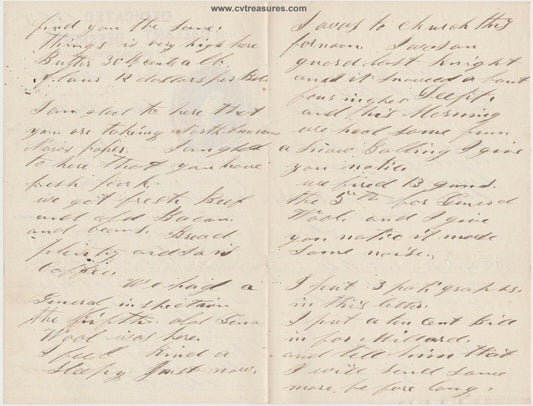 www.cvtreasures.com
find you the same.
Things is very high here
Butter 30 cents a lb.
Flour 12 dollars per Bar.
I am glad to here that
you are takeing North American
News paper. I am glad
to here that you have
fresh Pork.
we get fresh Beef
and old Bacon
and beans. Bread
plenty and so is
Coffee.
We had a
General inspection
the fifth. old Genr
Wool was here.
I feel kind a
Sleepy just now.
I was to church this
fornoon. I was on
guard last knight
and it snowed about
four inghes Deepth
and this Morning
we had some fun
a snow Balling I give
you notice.
we fired 13 guns.
the 5th for General
Wool. and I give
you notice it made
some noise.
I put 3 in
in this letter.
I put a ten cent Bill
in for Millard.
and tell him that
I will send some
more be fore long.